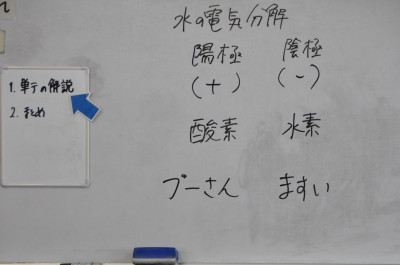 水の電気分解
陽極 陰極
(+) (-)
酸素 水素
プーさん ますい
1. 単元の解説
2. まとめ